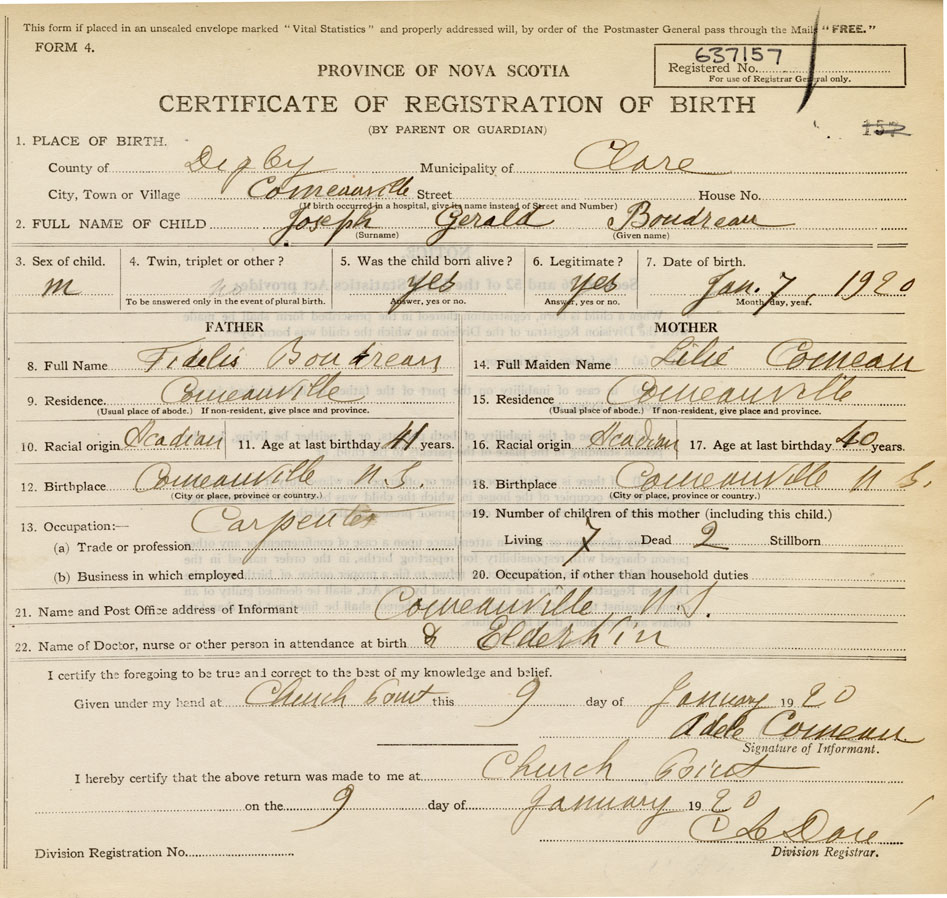 This form if placed in an unsealed envelope marked "Vital Statistics" and properly addressed will, by order of the Postmaster General pass through the Mails "FREE."
FORM 4.
637157
Registered No.
For use of Registrar General only.
PROVINCE OF NOVA SCOTIA
CERTIFICATE OF REGISTRATION OF BIRTH
(BY PARENT OR GUARDIAN)
157
1. PLACE OF BIRTH.
County of Digby Municipality of Clare
City, Town or Village Comeauville Street House No.
(If birth occurred in a hospital, give its name instead of Street and Number)
2. FULL NAME OF CHILD Joseph Gerald Boudreau
(Surname) (Given name)
3. Sex of child. 4. Twin, triplet or other? 5. Was the child born alive? 6. Legitimate? 7. Date of birth.
m yes yes Jan. 7, 1920
To be answered only in the event of plural birth. Answer, yes or no. Answer, yes or no. Month, day, year.
FATHER MOTHER
8. Full Name Fidelis Boudreau 14. Full Maiden Name Lilie Comeau
9. Residence Comeauville 15. Residence Comeauville
(Usual place of abode.) If non-resident, give place and province. (Usual place of abode.) If non-resident, give place and province.
10. Racial origin Acadian 11. Age at last birthday 41 years. 16. Racial origin Acadian 17. Age at last birthday 40 years.
12. Birthplace Comeauville N.S. 18. Birthplace Comeauville N.S.
(City or place, province or country.) (City or place, province or country.)
13. Occupation:— Carpenter 19. Number of children of this mother (including this child.)
(a) Trade or profession Living 7 Dead 2 Stillborn
(b) Business in which employed 20. Occupation, if other than household duties
21. Name and Post Office address of Informant Comeauville N.S.
22. Name of Doctor, nurse or other person in attendance at birth Elderkin
I certify the foregoing to be true and correct to the best of my knowledge and belief.
Given under my hand at Church Point this 9 day of January 1920
Adele Comeau
Signature of Informant.
I hereby certify that the above return was made to me at Church Point
on the 9 day of January 1920
Division Registration No.
Division Registrar.